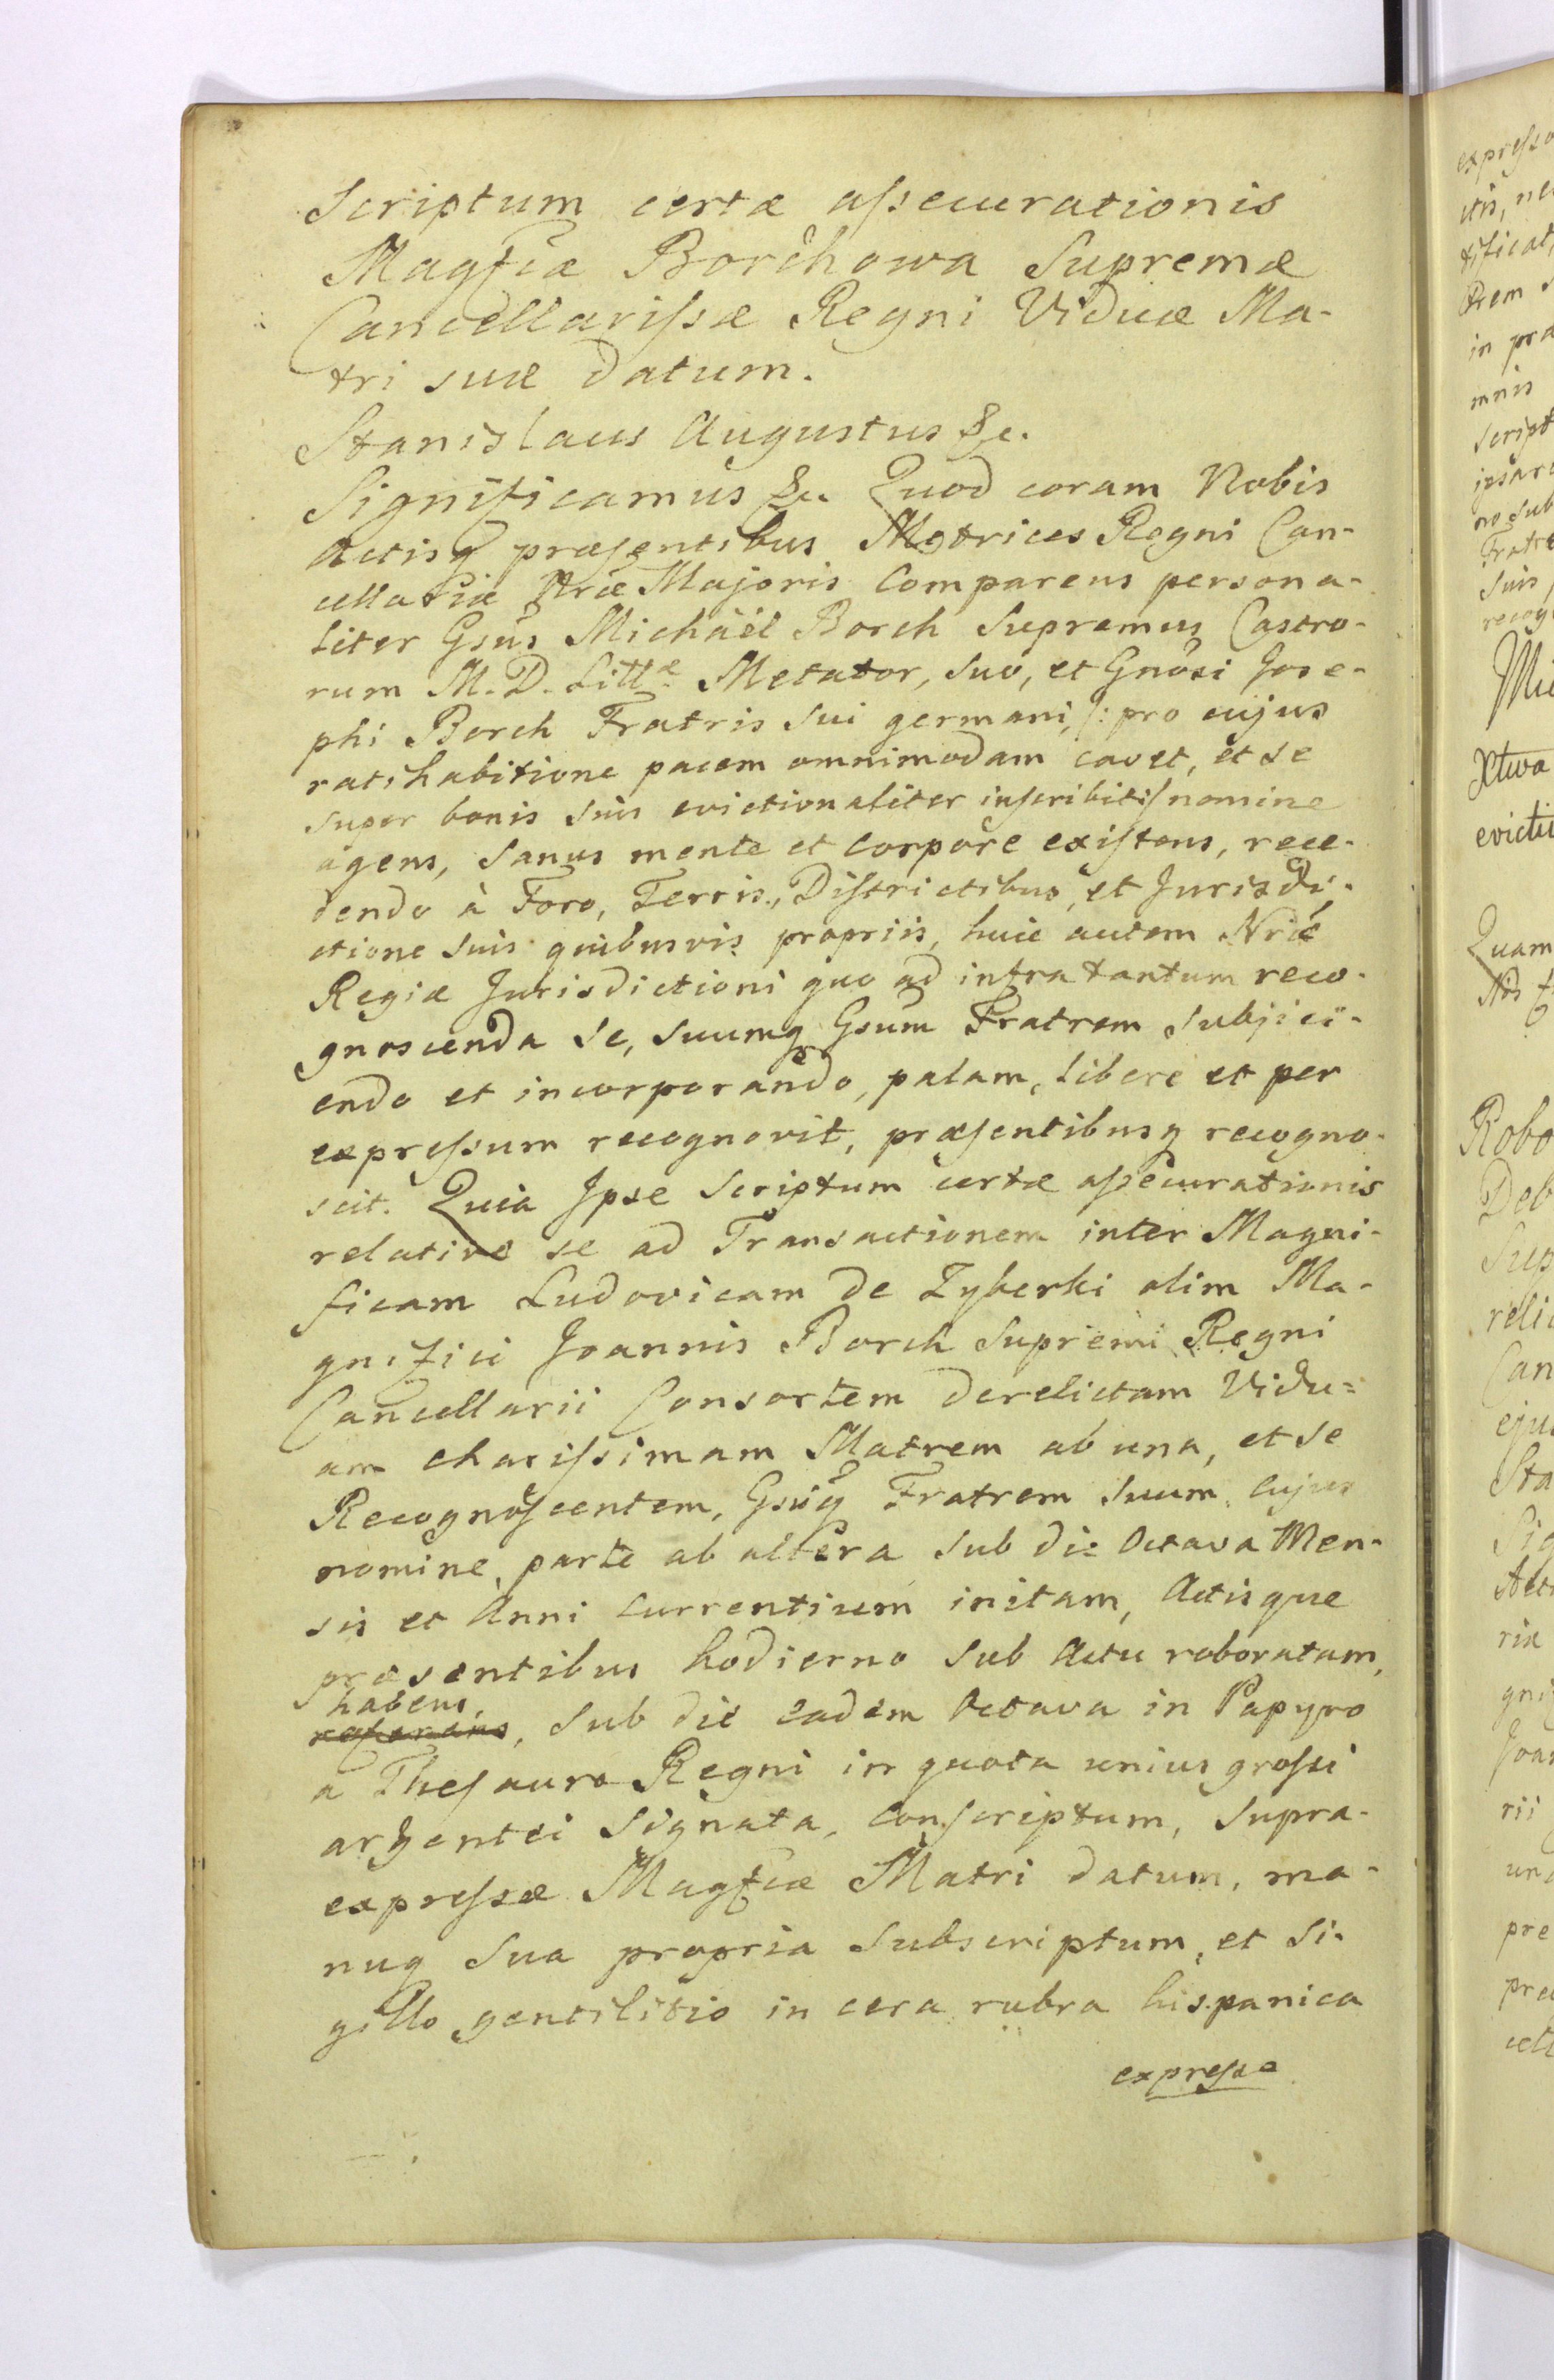 Scriptum certæ aſsecurationis
Magfcæ Borchowa Supremæ
Cancellariſsæ Regni Viduæ Ma-
tri suæ datum.
Stanislaus Augustus &c.
Significamus &c. Quod coram Nobis
Actisq præſentibus Metrices Regni Can-
cellariæ Nræ Majoris Comparens persona-
liter Gsus Michäel Borch Supremus Castro-
rum M. D. Littæ Metator, suo, et Gnosi Jose-
phi Borch Fratris sui germani, /: pro cujus
ratihabitione pacem omnimodam cavet, et se
super bonis suis evictionaliter inſcribit :/ nomine
agens, sanus mente et corpore exiſtens, rece-
dendo à Foro, Terris, Diſtrictibus, et Jurisdi-
ctione suis quibusvis propriis, huic autem Nræ
Regiæ Jurisdictioni quo ad infra tantum reco-
gnoscenda se, suumq Gsum Fratrem subjici-
endo et incorporando, palam, libere et per
expreſsum recognovit, præſentibusq recogno-
scit. Quia Ipse Scriptum certæ aſsecurationis
relative se ad Transactionem inter Magni-
ficam Ludovicam de Zyberki olim Ma-
gnifici Joannis Borch Supremi Regni
Cancellarii Consortem derelictam Vidu=
am chariſsimam Matrem ab una, et se
Recognoſcentem, Gsuq Fratrem suum, cujus
nomine, parte ab altera sub die Octava Men-
sis et Anni currentium initam, Actisque
præsentibus hodierno sub Actu roboratam,
habens,
, sub die eadem Octava in Papyro
a Theſauro Regni in quota unius groſsi
argentei signata, conſcriptum, supra-
expreſsæ Magfcæ Matri datum, ma-
nuq sua propria subscriptum, et si-
gillo gentilitio in cera rubra hispanica
expreſso
expreſso
Quam
Robo
Deb
Sup
Can
Sta
Sig
pre